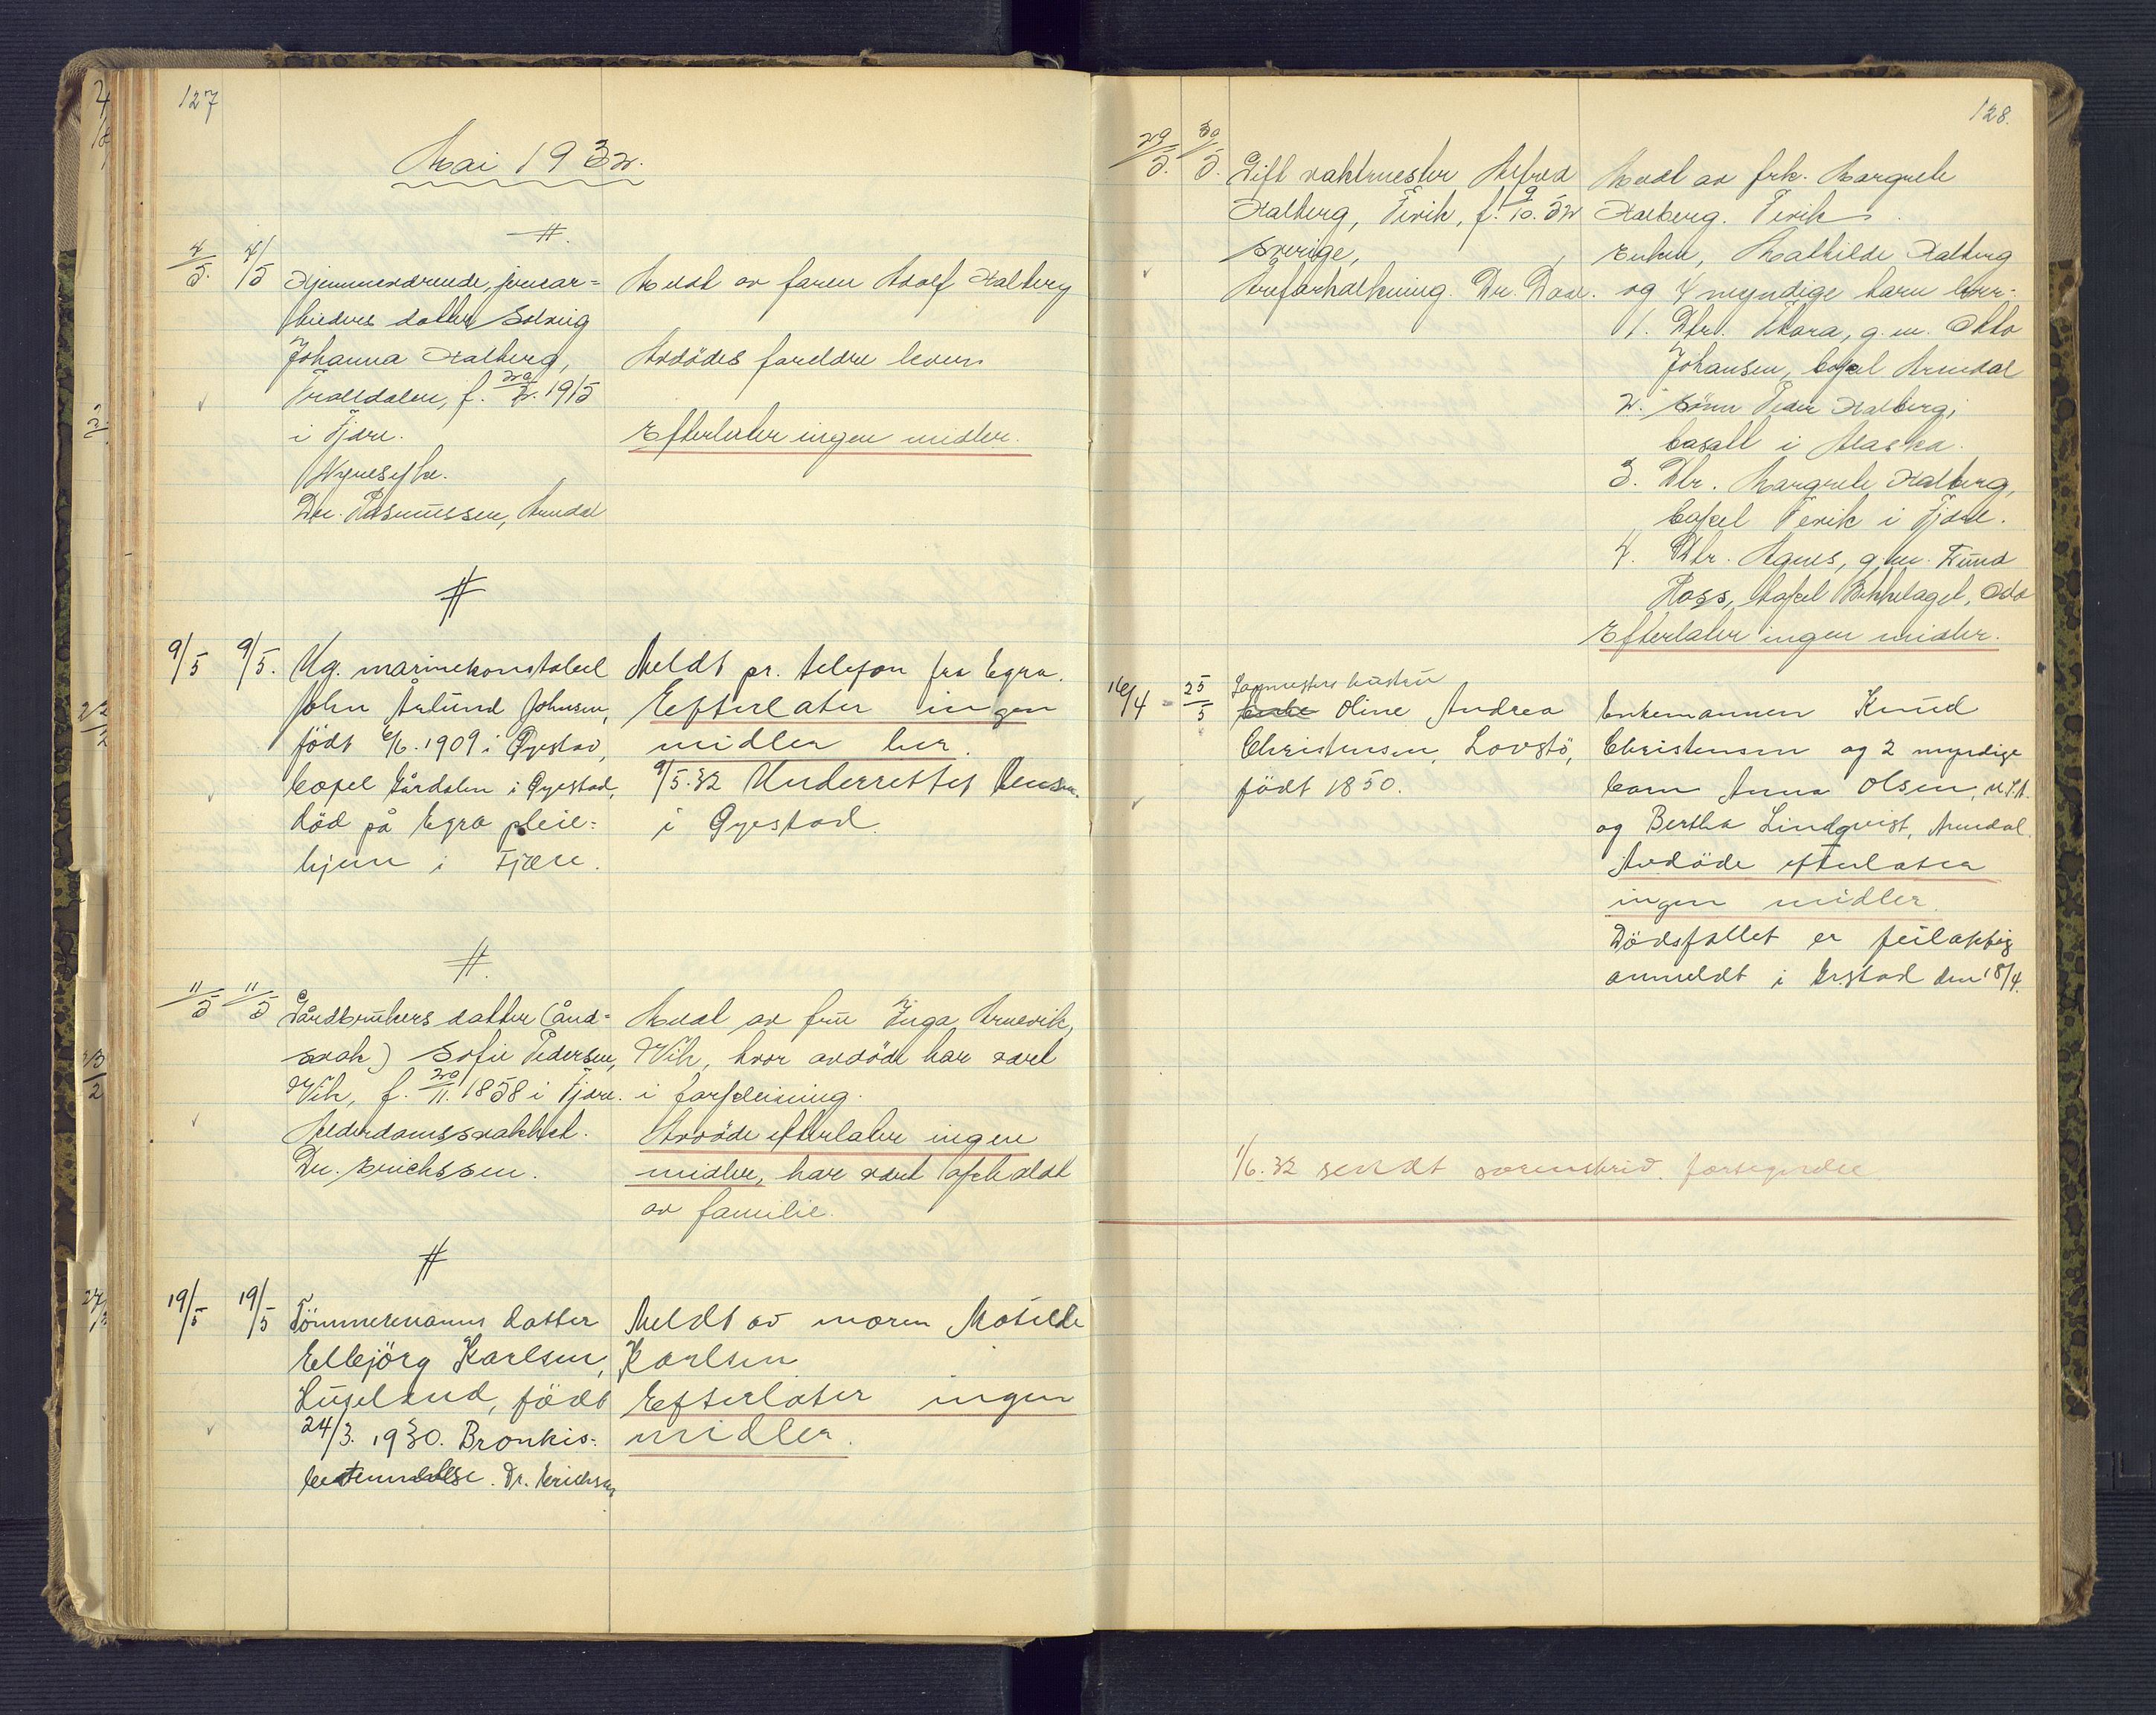 127
Mai 1932.
4/5. 4/5 Hjemmeværende, jernar-
beiders datter Solveig
Johanna Kalberg,
Trolldalen, f. 29/2. 1915
i Fjære.
Nyresyke.
Dr. Rasmussen, Arendal
Meldt av faren Adolf Kalberg
Avdödes foreldre lever.
Efterlater ingen midler.
9/5 9/5. Ug. marinekonstabel
John Årlund Johnsen,
födt 6/6. 1909 i Gjestad,
bopel Gårdalen i Gjestad,
död på Egra pleie-
hjem i Fjære.
Meldt pr. telefon fra Egra.
Efterlater ingen
midler her.
9/5.32 Underrettet lensm.
i Gjestad.
11/5 11/5 Gårdbrukers datter (ånd-
svak) Sofie Pedersen,
Vik, f. 29/11. 1858 i Fjære.
Alderdomssvakhet.
Dr. Erichssen.
Meldt av fru Inga Arnevik,
Vik, hvor avdöde har vært
i forpleining.
Avdöde efterlater ingen
midler, har vært opholdt
av familie.
19/5 19/5 Tömmermanns datter
Elbjörg Karlsen,
Huseland, födt
24/3. 1930. Bronkis-
betennelse. Dr. Erichsen
Meldt av moren Matilde
Karlsen
Efterlater ingen
midler.
128.
29/5. 30/5. Gift vaktmester Alfred
Kalberg, Fevik, f. 9/10. 52
Sverige,
Åreforkalkning. Dr. Dael.
Meldt av frk. Margrete
Kalberg. Fevik.
Enken, Mathilde Kalberg
og 4 myndige barn lever:
1. Dtr. Mara, g. m. Otto
Johansen, bopel Arendal
2. Sönn Peder Kalberg,
bosatt i Alaska.
3. Dtr. Margrete Kalberg,
bopel Fevik i Fjære.
4. Dtr. Agnes, g. m. Knud
Ross, bopel Bekkelaget, Oslo
Efterlater ingen midler.
16/4 - 25/5 hustru
Enke Oline Andrea
Christensen, Lovstö,
födt 1850.
Enkemannen Knud
Christensen og 2 myndige
barn Anna Olsen, U.S.A.
og Bertha Lindqvist, Arendal.
Avdöde efterlater
ingen midler.
Dödsfallet er feilaktig
anmeldt i Ørstad den 18/4.
1/6.32 sendt sorenskriv. forsegndse.